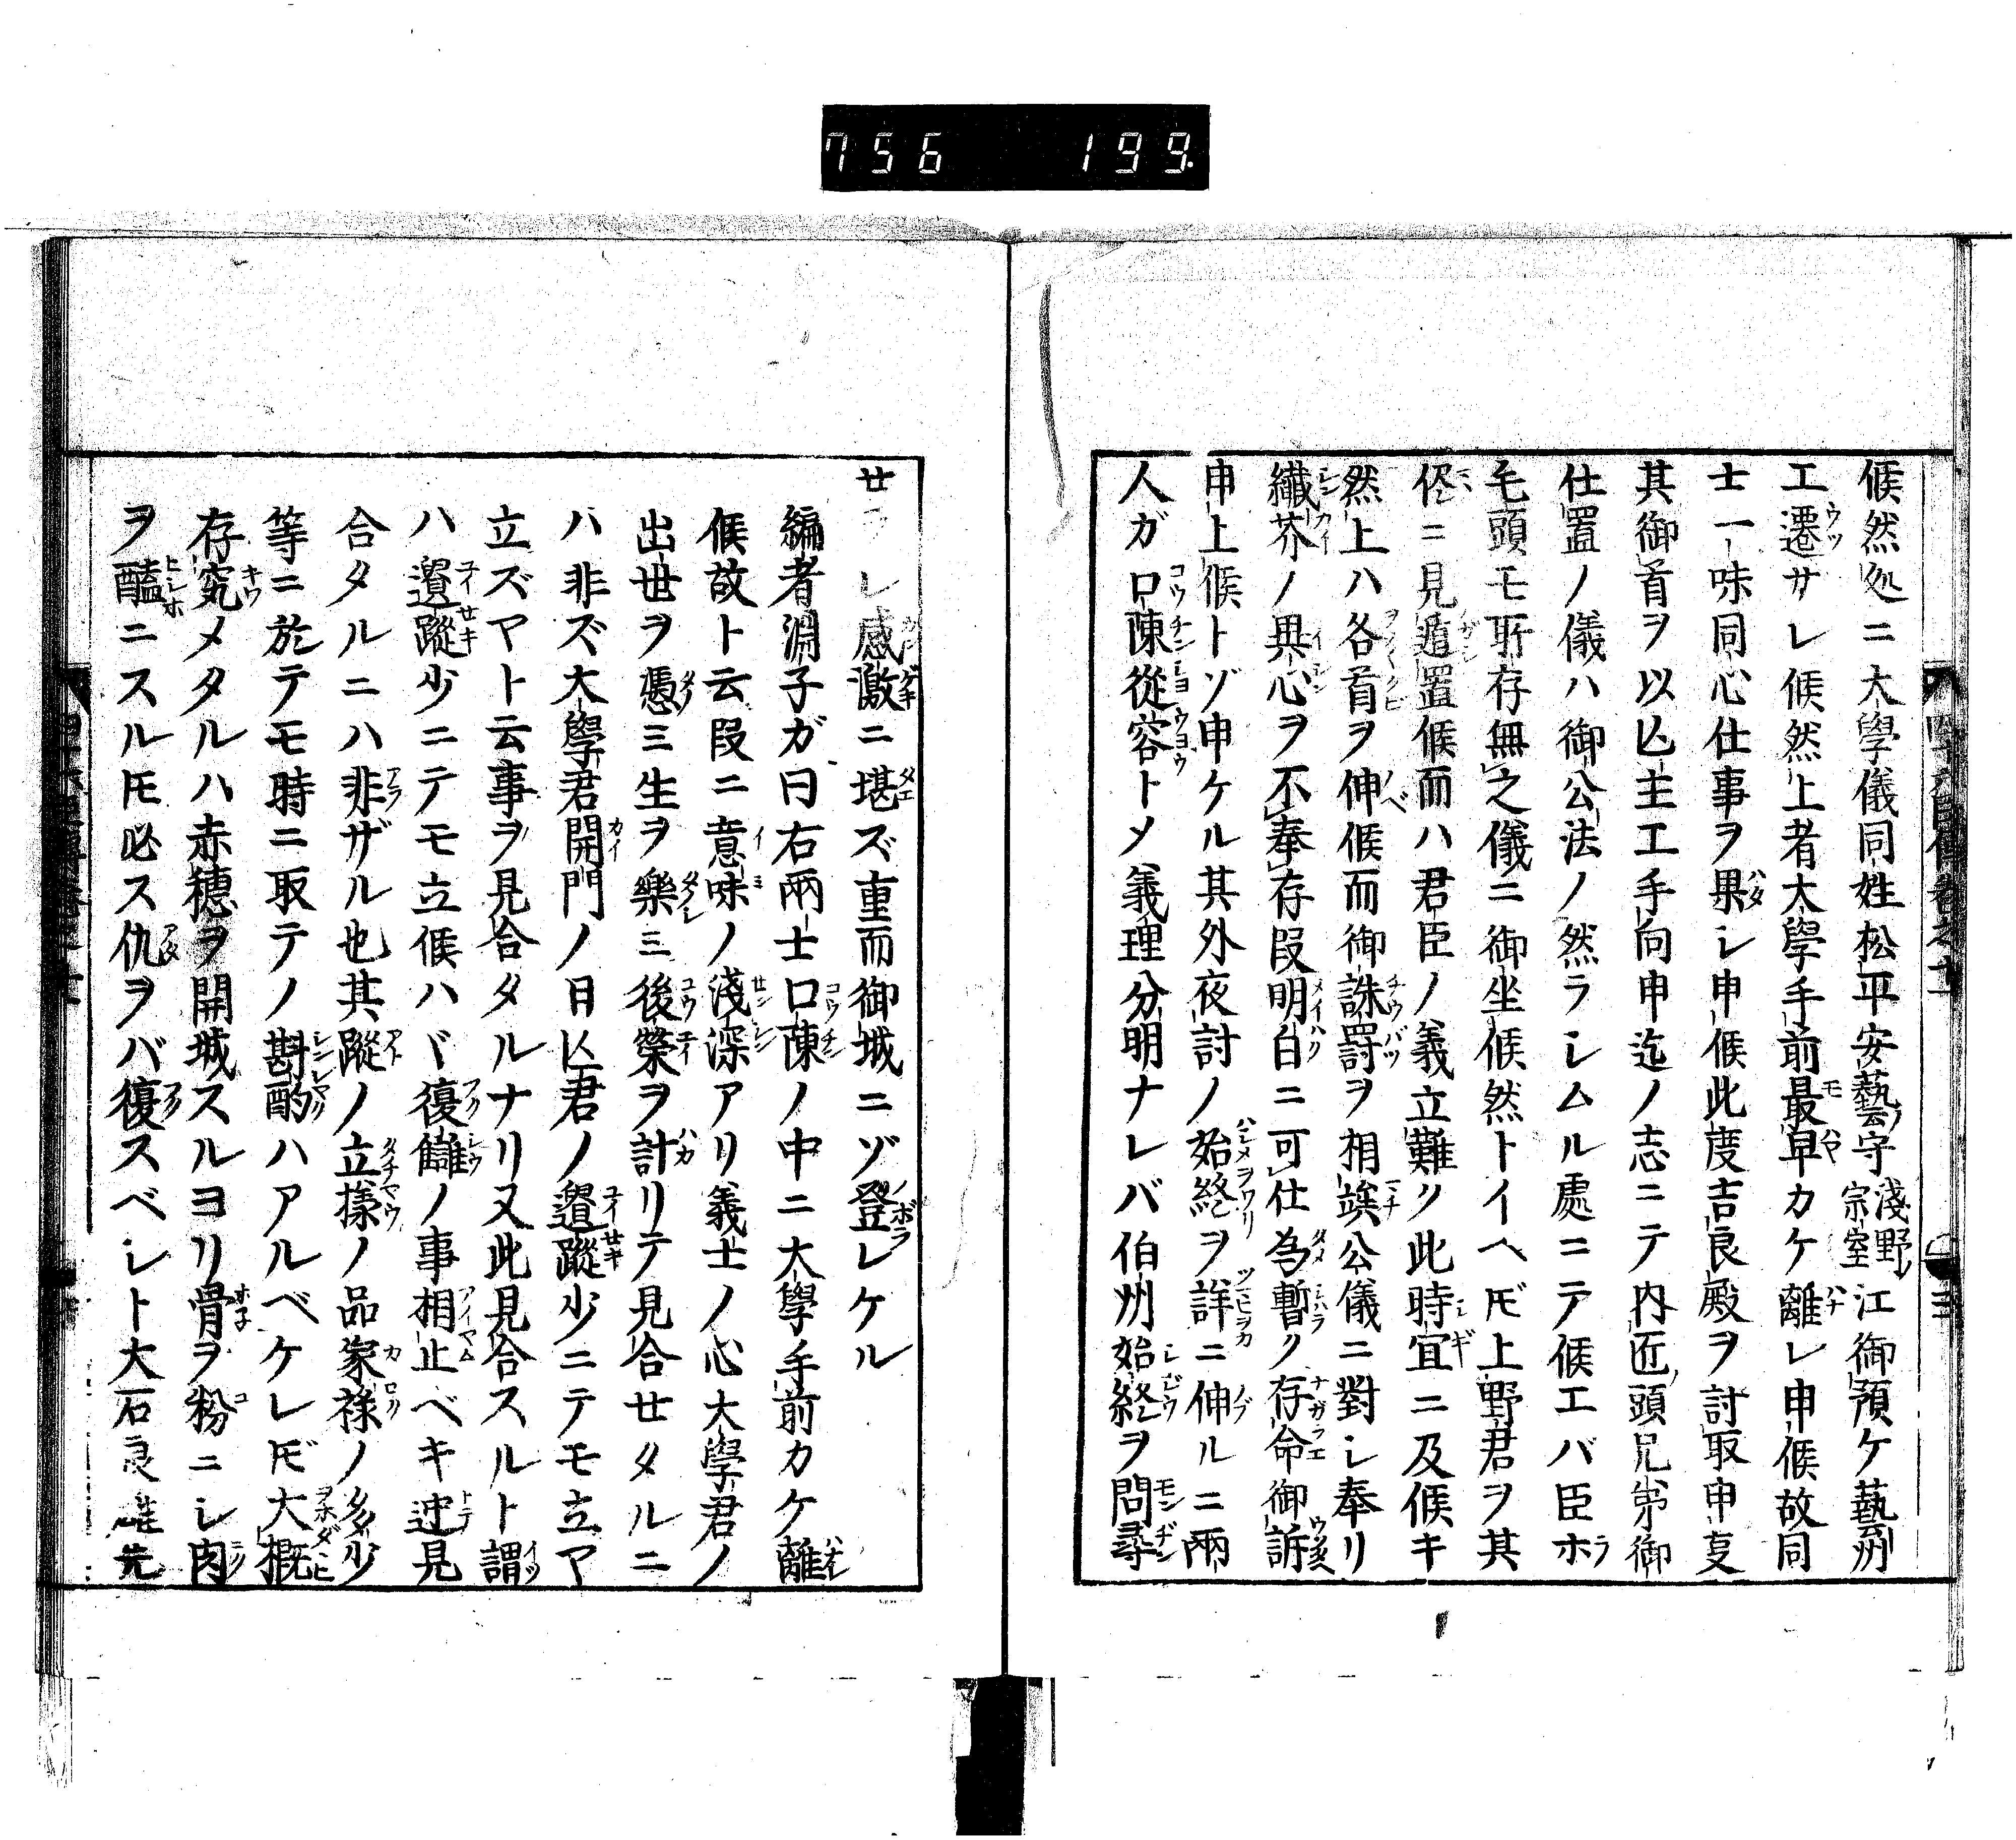 756 199
候然処ニ大學儀同姓松平安藝守淺野宗室江御預ケ藝州
エ遷サレ候然上者大學手前最早カケ離レ申候故同
士一味同心仕事ヲ果シ申候此度吉良殿ヲ討取申亊
其御首ヲ以亾主エ手向申迄ノ志ニテ内匠頭兄弟御
仕置ノ儀ハ御公法ノ然ラシムル處ニテ候エバ臣ホ
毛頭モ所存無之儀ニ御坐候然トイヘ𪜈上野君ヲ其
侭ニ見遁置候而ハ君臣ノ義立難ク此時宜ニ及候キ
然上ハ各首ヲ伸候而御誅罸ヲ相竢公儀ニ對シ奉リ
纎芥ノ異心ヲ不奉存段明白ニ可仕為暫ク存命御訴
申上候トゾ申ケル其外夜討ノ始終ヲ詳ニ伸ルニ兩
人ガ口陳從容トメ義理分明ナレバ伯州始終ヲ問尋
せラレ感激ニ堪ズ重而御城ニゾ登レケル
編者淵子ガ曰右兩士口陳ノ中ニ大學手前カケ離
候故ト云段ニ意味ノ淺深アリ義士ノ心大學君ノ
出世ヲ憑ミ生ヲ樂ミ後榮ヲ計リテ見合せタルニ
ハ非ズ大學君開門ノ日亾君ノ遺蹤少ニテモ立マ
立ズマト云事ヲ見合タルナリ又此見合スルト謂
ハ遺蹤少ニテモ立候ハヾ復讎ノ事相止ベキ迚見
合タルニハ非ザル也其蹤ノ立樣ノ品家祿ノ多少
等ニ於テモ時ニ取テノ斟酌ハアルベケレ𪜈大概
存究メタルハ赤穗ヲ開城スルヨリ骨ヲ粉ニシ肉
ヲ醢ニスル𪜈必ス仇ヲバ復スベシト大石良雄先